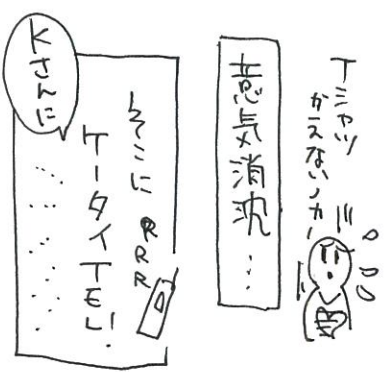 Tシャツ
かえないノカー
意気消沈…
そこに
RRR
ケータイTEL!
Kさんに
……